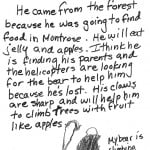 He came from the forest
because he was going to find
food in Montrose. He will eat
jelly and apples. I think he
is finding his parents and
the helicopters are looking
for the bear to help him
because he's lost. His claws
are sharp and will help him
to climb trees with fruit
like apples.
My bear is